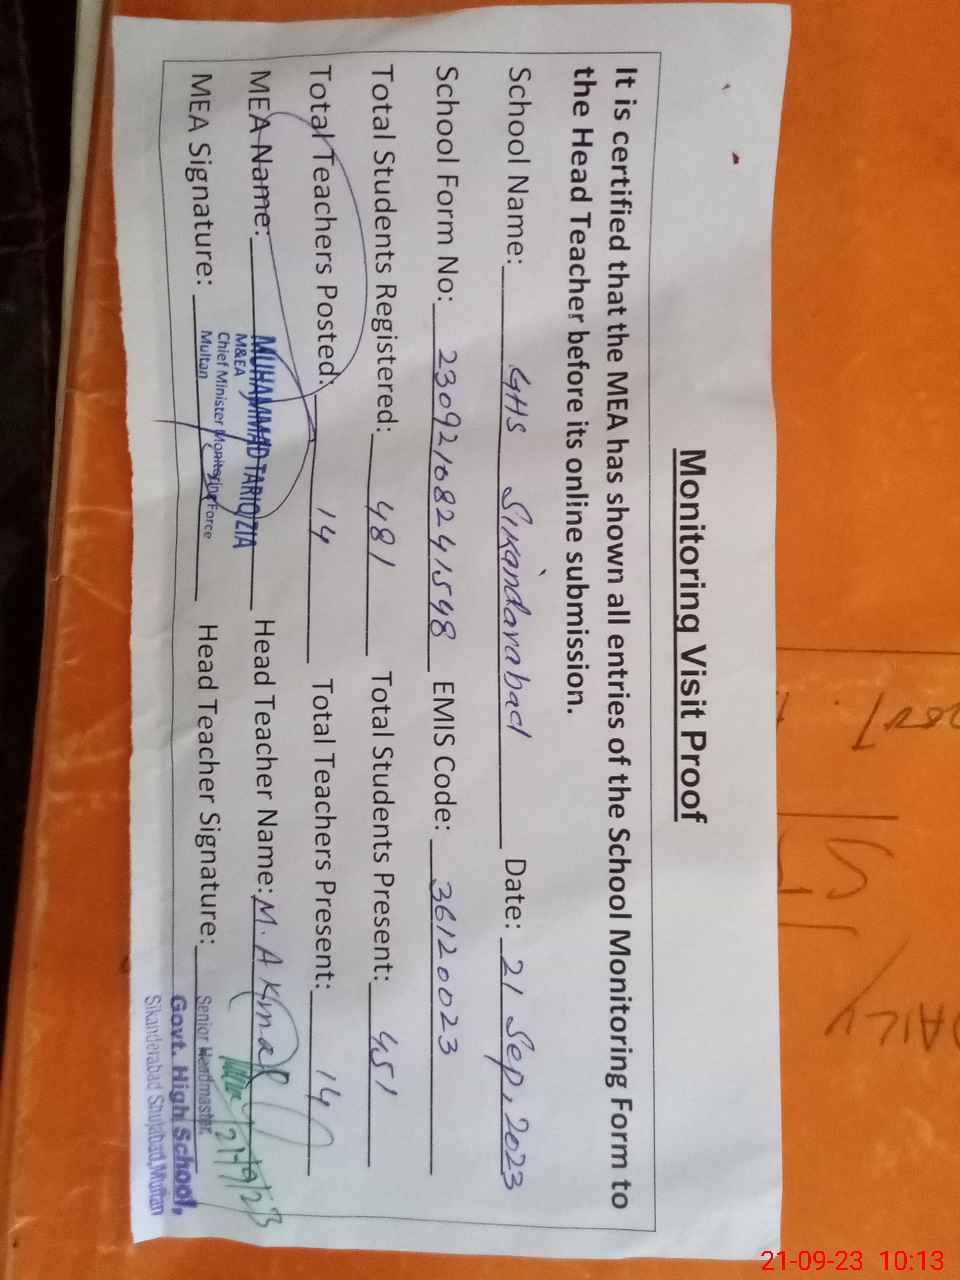 Monitoring Visit Proof
It is certified that the MEA has shown all entries of the School Monitoring Form to
the Head Teacher before its online submission.
School Name: GHS Sikandarabad Date: 21 Sep, 2023
School Form No: 23092108241548 EMIS Code: 36120023
Total Students Registered: 481 Total Students Present: 451
Total Teachers Posted: 14 Total Teachers Present: 14
MEA Name: MUHAMMAD TARIQ ZIA Head Teacher Name: M. Akmal
M&EA
Chief Minister Monitoring Force
Multan
MEA Signature: Head Teacher Signature:
21/9/23
Senior Headmaster,
Govt. High School,
Sikanderabad Shujabad, Multan
DAILY
21-09-23 10:13